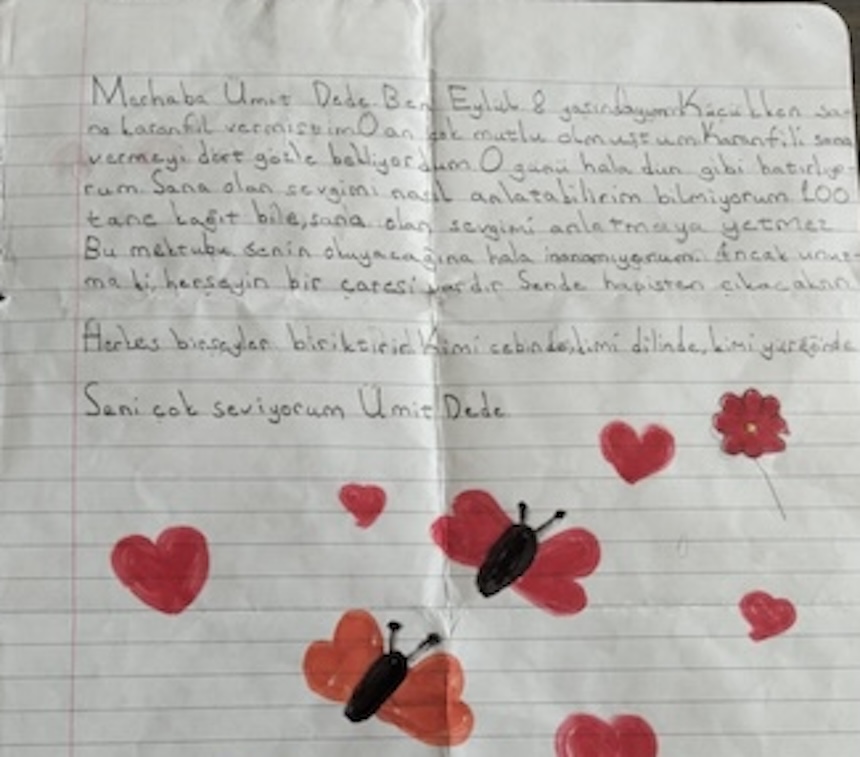 Merhaba Ümit Dede. Ben Eylül 8 yaşındayım. Küçükken sa-
na karanfil vermiştim. O an çok mutlu olmuştum. Karanfili sana
vermeyi dört gözle bekliyordum. O günü hala dün gibi hatırlıyo-
rum. Sana olan sevgimi nasıl anlatabilirim bilmiyorum 100
tane kağıt bile, sana olan sevgimi anlatmaya yetmez
Bu mektubu senin okuyacağına hala inanamıyorum. Ancak unut-
ma ki, herşeyin bir çaresi vardır. Sende hapisten çıkacaksın
Herkes birşeyler biriktirir. Kimi cebinde, kimi dilinde, kimi yüreğinde
Seni çok seviyorum Ümit Dede